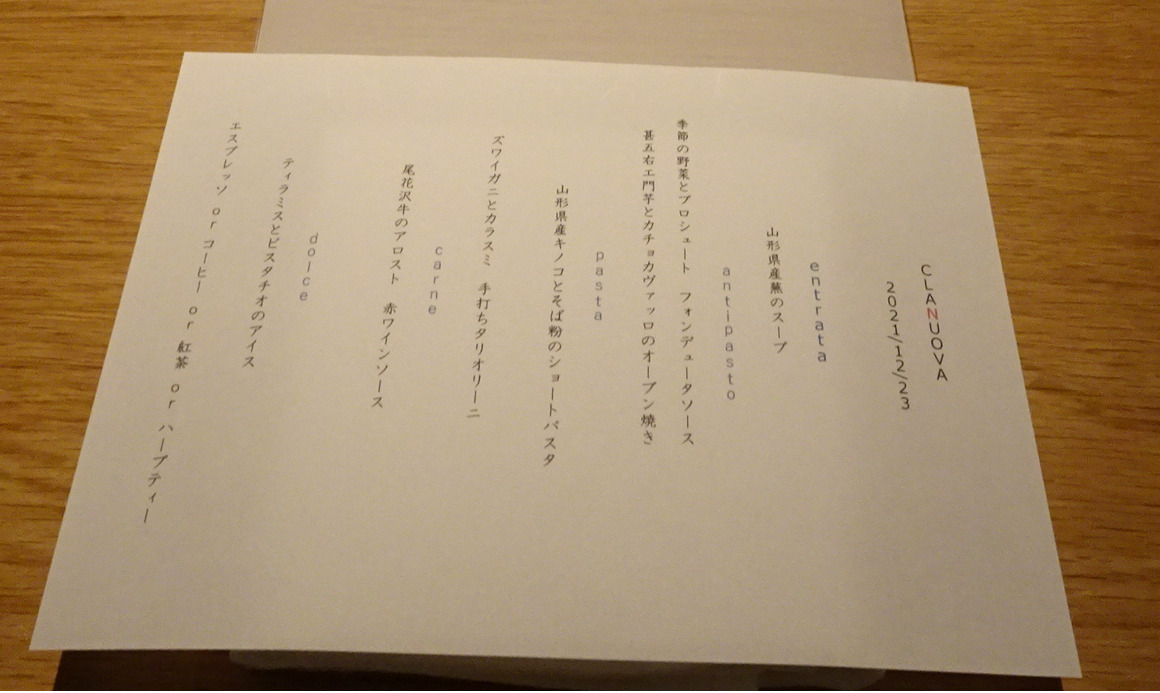 CLANUOVA
2021/12/23
entrata
山形県産蕪のスープ
antipasto
季節の野菜とプロシュート　フォンデュータソース
甚五右エ門芋とカチョカヴァッロのオーブン焼き
pasta
山形県産キノコとそば粉のショートパスタ
ズワイガニとカラスミ　手打ちタリオリーニ
carne
尾花沢牛のアロスト　赤ワインソース
dolce
ティラミスとピスタチオのアイス
エスプレッソ or コーヒー or 紅茶 or ハーブティー